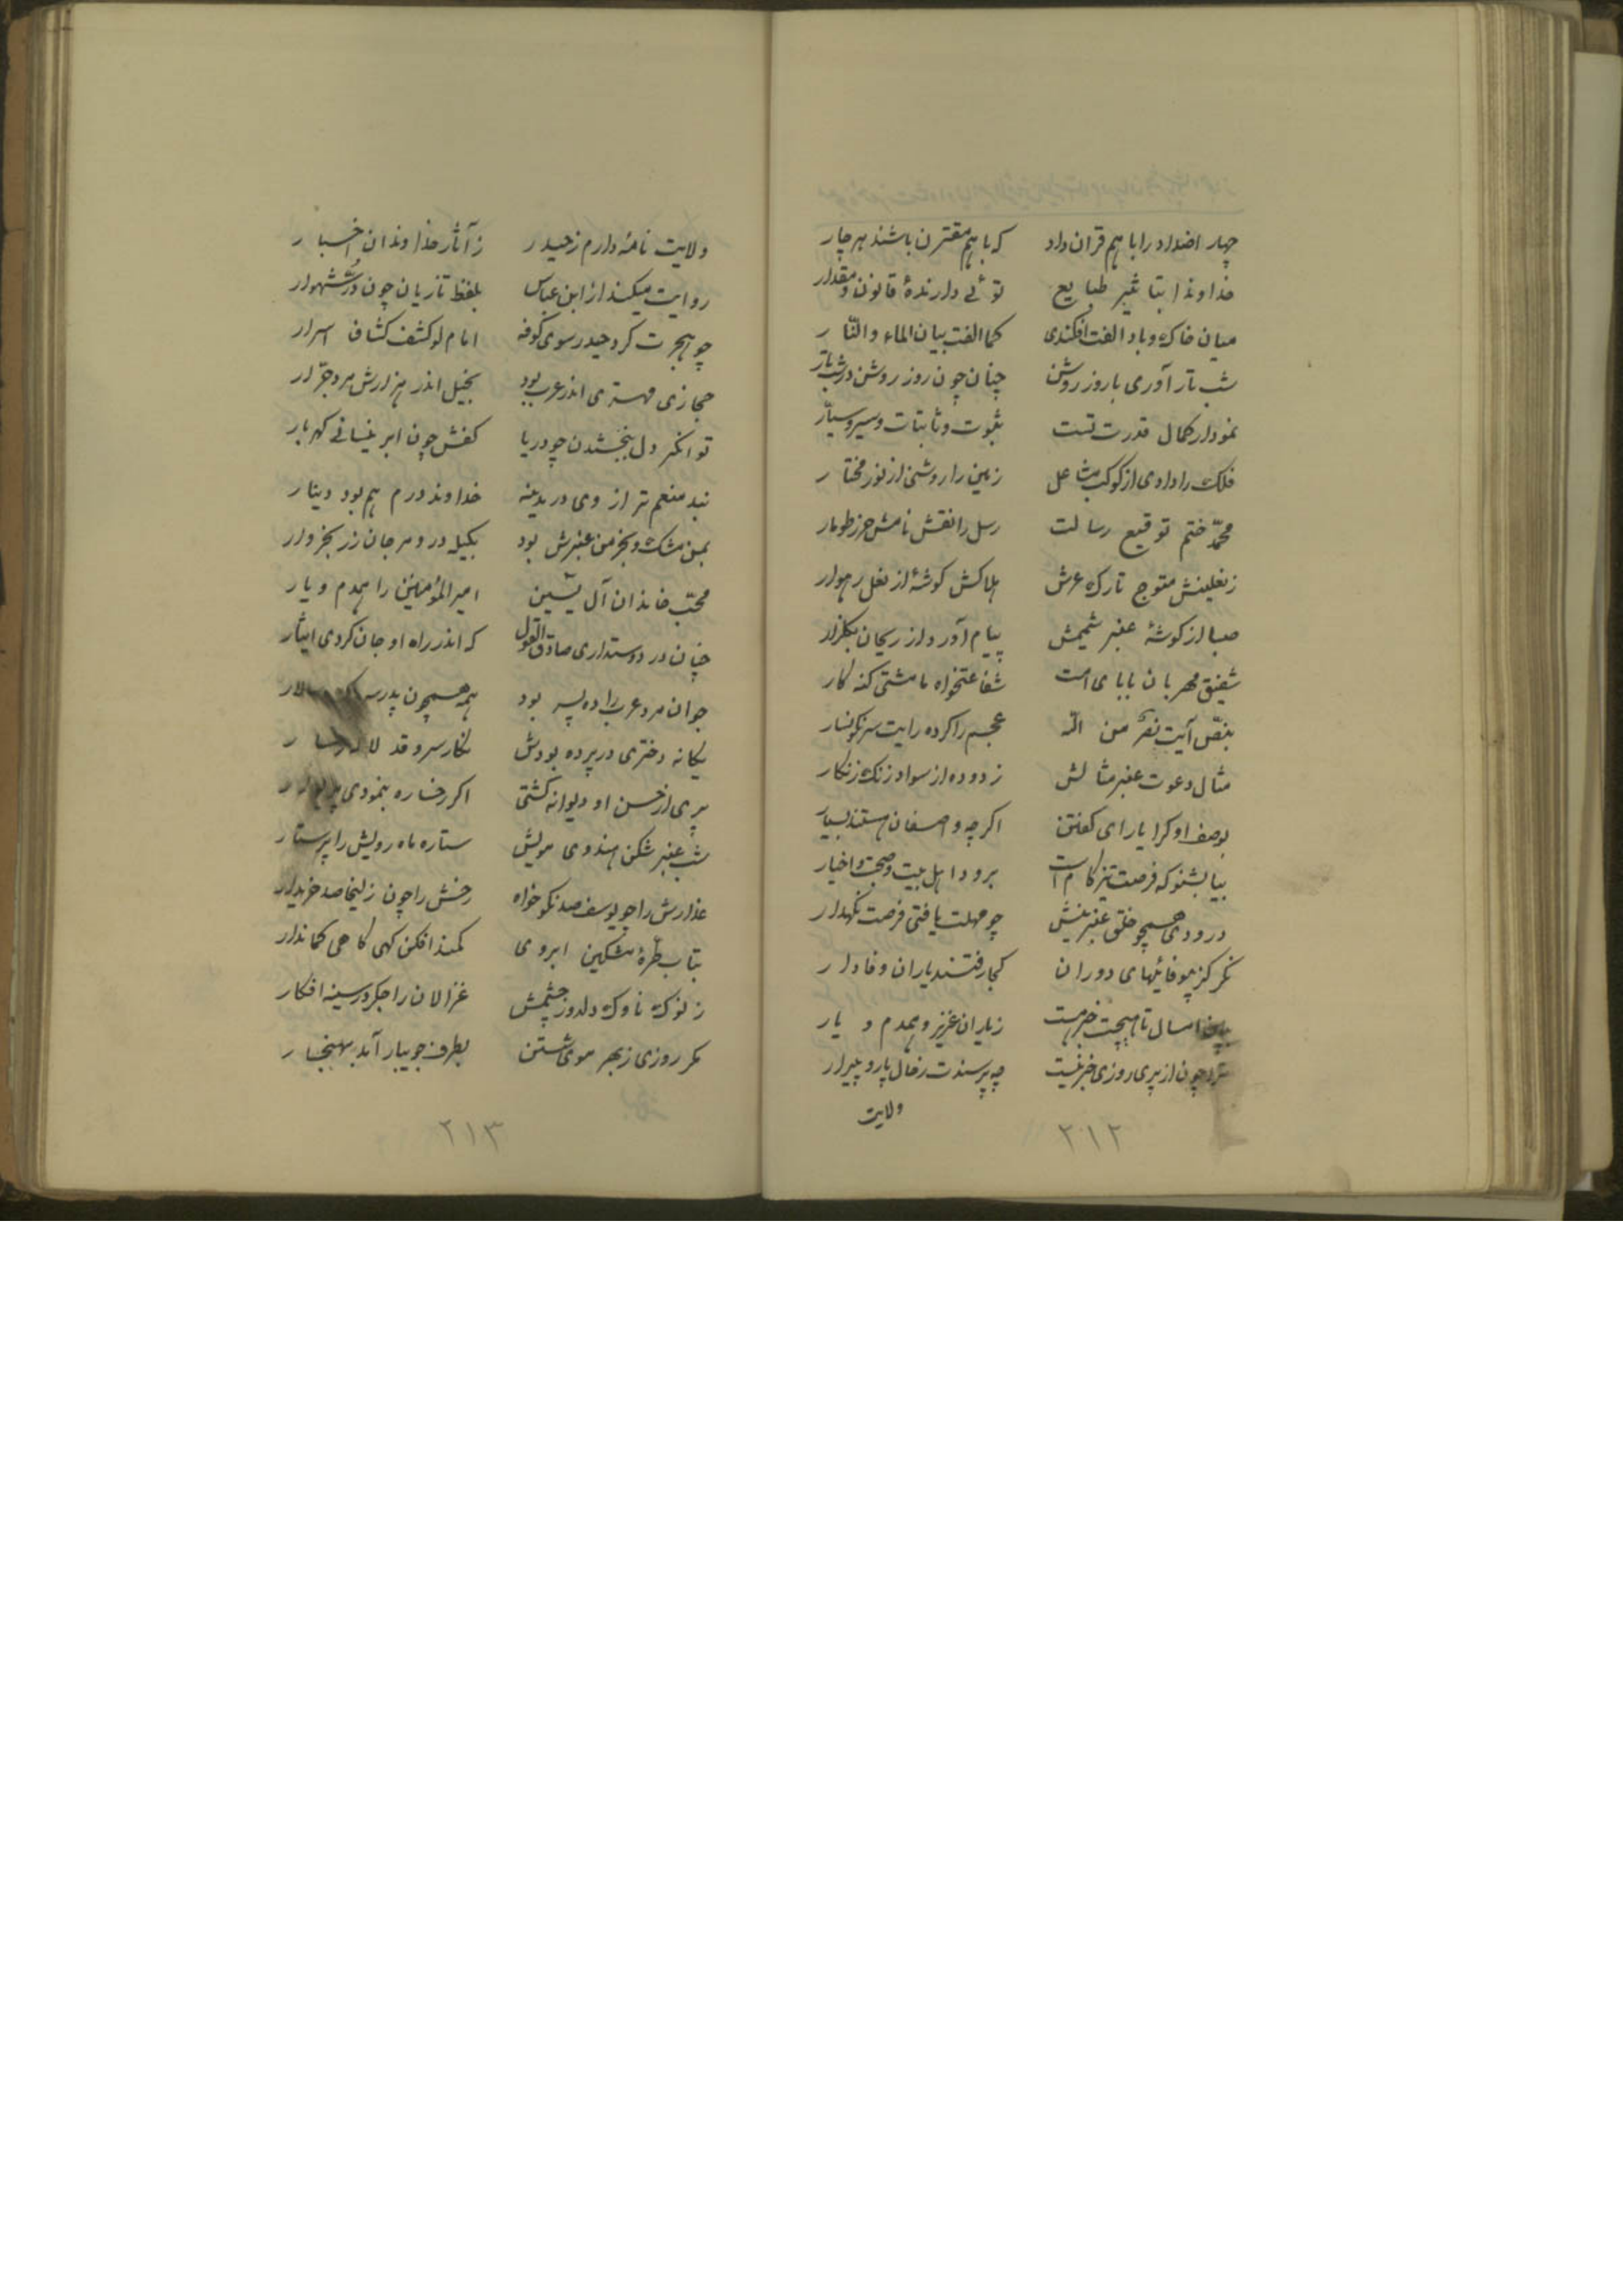 چهار اضداد را با هم قران داد که با هم مقترن باشند هر چار
خداوندا بتاثیر طبایع توئی دارندهٔ قانون و مقدار
میان خاک و باد الفت افکندی کما الفت بیان الماء والنّار
شب تار آوری با روز روشن چنان چون روز روشن در شب تار
نمودار کمال قدرت تست ثبوت و ثابتات و سیر و سیّار
فلک را دادی از کوکب مشاعل زمین را روشنی از نور مختار
محمّد ختم توقیع رسالت رسل را نقش نامش حرز طومار
ز نعلینش متوج تارک عرش هلاکش کوشهٔ از نعل رهوار
صبا از کوشهٔ عنبر شمیمش پیام آورد از ریحان بکلزار
شفیق مهربان بابای امت شفاعتخواه ما مشتی کنه کار
بنصّ آیت نصر من الله عجم را کرده رایت سرنکونسار
مثال دعوت عنبر مثالش زدوده از سواد زنک زنکار
بوصف او کرا یارای کفتن اکر چه واصفان هستند بسیار
بیا بشنو که فرصت تیز کام است برود اهل بیت و صحب اخیار
درودی همچو خلق عنبرینش چو مهلت یافتی فرصت نکهدار
نکر کز بیوفائیهای دوران کجا رفتند یاران وفادار
امسال تا هیچت خبر هست ز یاران عزیز و همدم و یار
ترا چون از پری روزی خبر نیست چه پرسندت ز حال پار و پیرار
ولایت
۲۱۲
ولایت نامهٔ دارم ز حیدر ز آثار خداوندان اخبار
روایت میکند از ابن عباس بلفظ تازیان چون درّ شهوار
چو هجرت کرد حیدر سوی کوفه امام لو کشف کشاف اسرار
حجازی مهتری اندر عرب بود بخیل اندر هزارش مرد جرّار
توانکر دل ببخشدن چو دریا کفش چون ابر نیسانی کهربار
نبد منعم تر از وی در مدینه خداوند درم هم بود دینار
بمن مشک و بخرمن عنبرش بود بکیل در و مرجان زر بخروار
محبّ خاندان آل یسین امیر المؤمنین را همدم و یار
چنان در دوستداری صادق القول که اندر راه او جان کردی ایثار
جوان مرد عرب را ده پسر بود همه همچون پدر سالار
یکانه دختری در پرده بودش نکار سرو قد لاله رخسار
پری از حسن او دیوانه کشتی اکر رخساره بنمودی
شب عنبر شکن هندوی مویش ستاره ماه رویش را پرستار
عذارش را چو یوسف صد نکو خواه رخش را چون زلیخا صد خریدار
بتاب طرّهٔ مشکین ابروی کمند افکن کهی کاهی کماندار
ز نوک ناوک دلدوز چشمش غزالان را جکر در سینه افکار
مکر روزی ز بهر موی شستن بطرف جویبار آمد بهنجار
۲۱۳